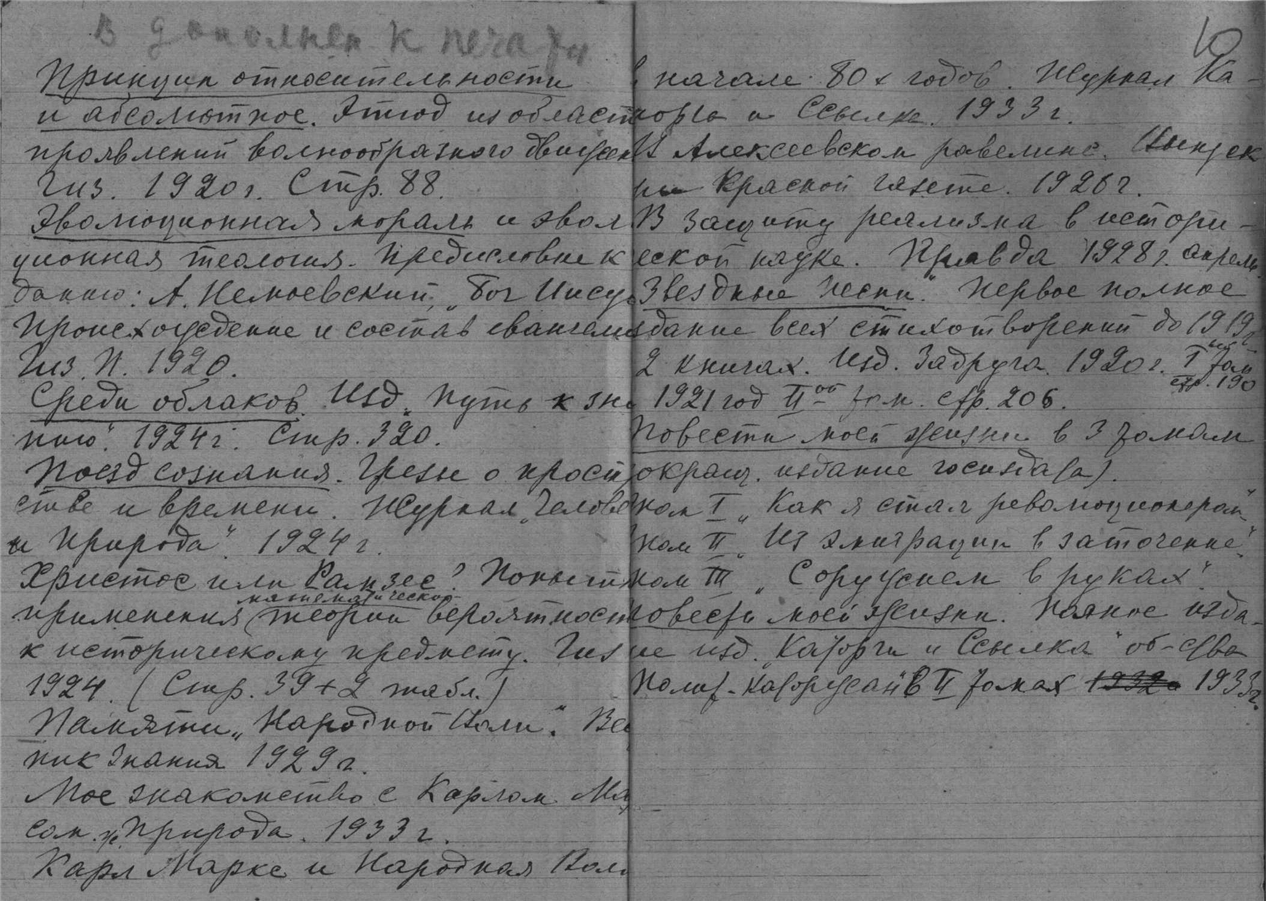 В дополнен к печати
Принцип относительности
и абсолютное. Этюд из област
проявлений волнообразного движен
Гиз. 1920г. Стр. 88.
Эволюционная мораль и эвол
ционная теология. Предисловие к
данию: А. Немоевский, „Бог Иису
Происхождение и состав евангели
Гиз. П. 1920.
Среди облаков. Изд. „Путь к зна
нию". 1924г. Стр. 320.
Поезд сознания. Грезы о прост
стве и времени. Журнал „Челове
и Природа". 1924г.
Христос или Рамзес? Попыт
математической
применения теории вероятност
к историческому предмету. Гиз
1924 (Стр. 39+2 табл.)
Памяти „Народной Воли". Вес
ник Знания 1929г.
Мое знакомство с Карлом Ма
сом. Природа. 1933г.
Карл Маркс и Народная Вол
10
в начале 80х годов. Журнал Ка-
торга и Ссылка. 1933г.
В Алексеевском равелине. Выпуск
при Красной газете. 1926г.
В защиту реализма в истори-
еской науке. Правда 1928г. апрель
„Звездные Песни". Первое полное
здание всех стихотворений до 1919г
2 книгах. Изд. Задруга. 1920г. I ый том
стр. 190
1921 год II ой том. стр. 206.
Повести моей жизни в 3 томах
окращ. издание госиздата).
том I „Как я стал революционером"
том II „Из эмиграции в заточение".
том III „С оружием в руках".
Повести моей жизни. Полное изда-
ие изд. „Каторги и Ссылка" об-ства
Полит-каторжан в II томах 1932 1933г.